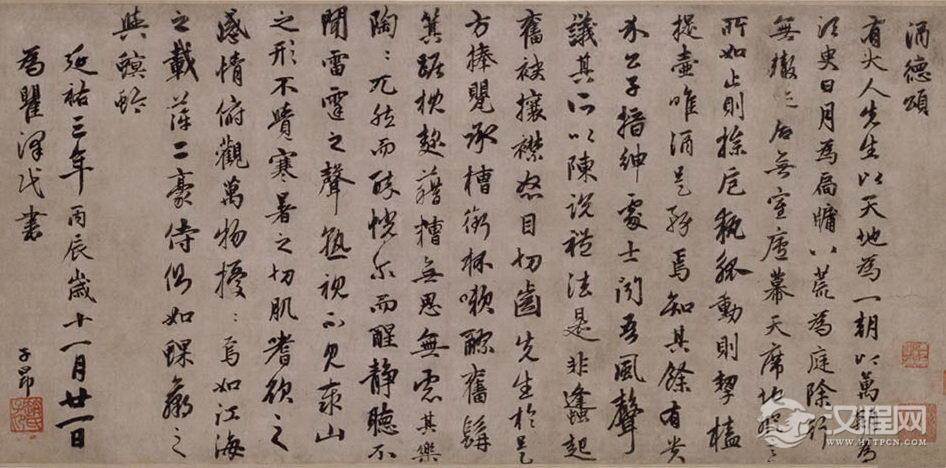 酒德頌
有大人先生以天地為一朝以萬期為
須臾日月為扃牖八荒為庭除行
無轍迹居無室廬幕天席地縱意
所如止則操卮執觚動則挈榼
提壺唯酒是務焉知其餘有貴
介公子搢紳處士聞吾風聲
議其所以陳說禮法是非蠭起
奮袂攘襟怒目切齒先生於是
方捧甖承槽銜杯漱醪奮髯
箕踞枕麴藉糟無思無慮其樂
陶〻兀然而醉恍尔而醒靜聽不
聞雷霆之聲熟視不見泰山
之形不覺寒暑之切肌嗜欲之
感情俯觀萬物擾〻焉如江海
之載萍二豪侍側如蜾蠃之
與螟蛉
延祐三年丙辰歲十一月廿一日
為瞿澤書
子昂
汉程网
HTTPCN.COM